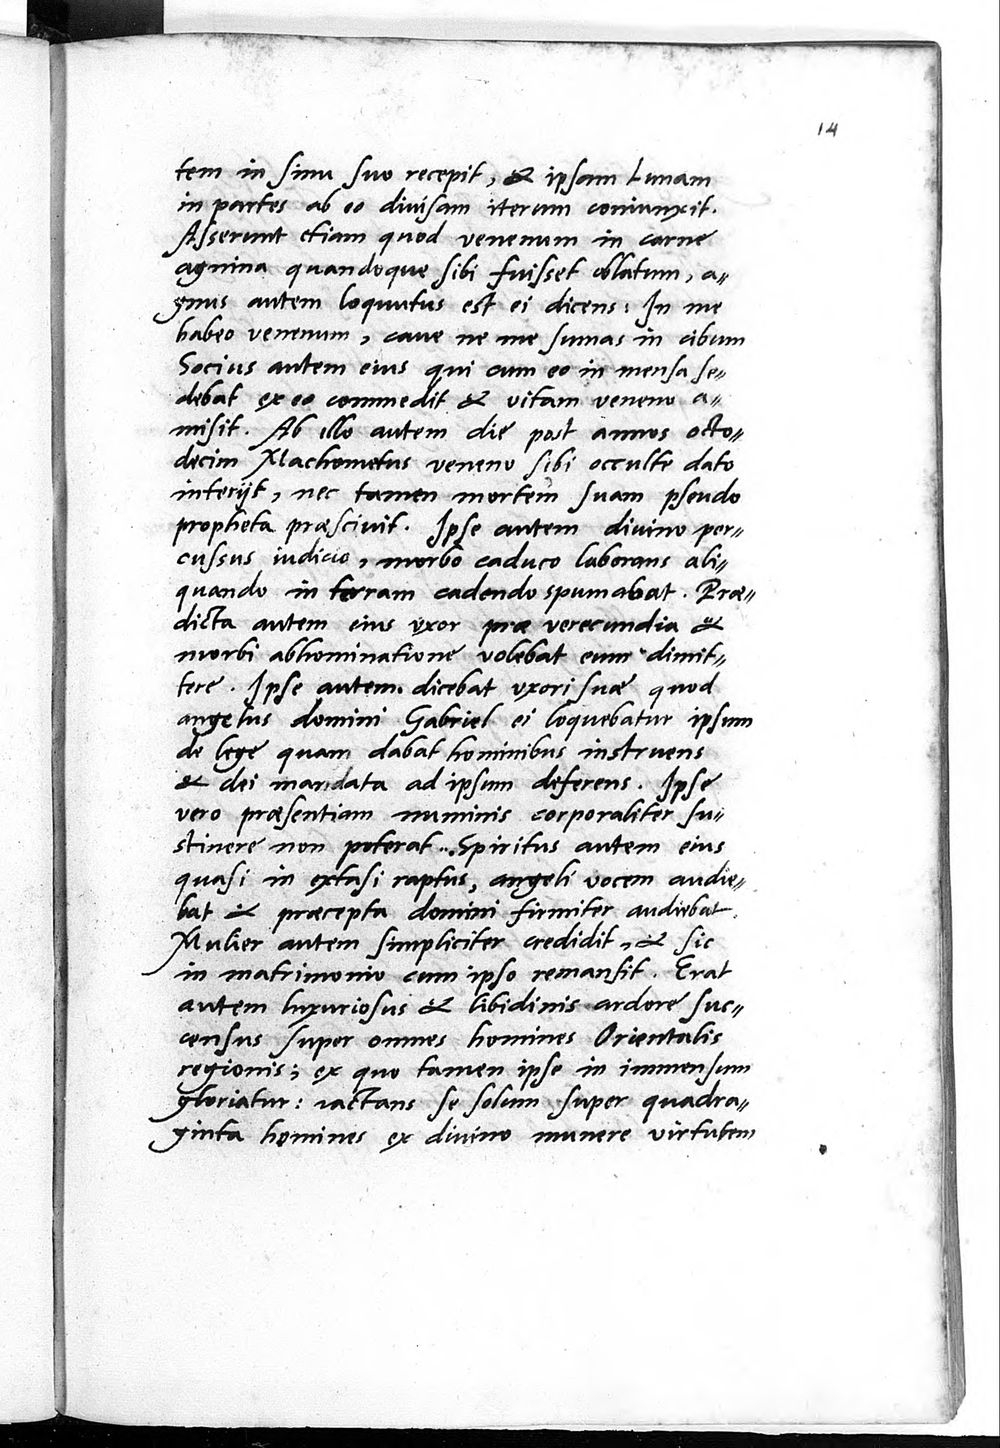 14
tem in sinu suo recepit, & ipsam Lunam
in partes ab eo diuisam iterum coniunxit.
Asserunt etiam quod venenum in carne
agnina quandoque sibi fuisset oblatum, a=
gnus autem loquutus est ei dicens: In me
habeo venenum, caue ne me sumas in cibum
Socius autem eius qui cum eo in mensa se=
debat ex eo commedit & vitam veneno a=
misit. Ab illo autem die post annos octo=
decim Machometus veneno sibi occulte dato
interijt, nec tamen mortem suam pseudo
propheta præsciuit. Ipse autem diuino per=
cussus iudicio, morbo caduco laborans ali=
quando in terram cadendo spumabat. Præ=
dicta autem eius vxor præ verecundia &
morbi abhominatione volebat eum dimit=
tere. Ipse autem dicebat vxori suæ quod
angelus domini Gabriel ei loquebatur ipsum
de lege quam dabat hominibus instruens
& dei mandata ad ipsum deferens. Ipse
vero præsentiam numinis corporaliter su=
stinere non poterat. Spiritus autem eius
quasi in extasi raptus, angeli vocem audie=
bat & præcepta domini firmiter audiebat.
Mulier autem simpliciter credidit, & sic
in matrimonio cum ipso remansit. Erat
autem luxuriosus & libidinis ardore suc=
census super omnes homines Orientalis
regionis; ex quo tamen ipse in immensum
gloriatur: iactans se solum super quadra=
ginta homines ex diuino munere virtutem